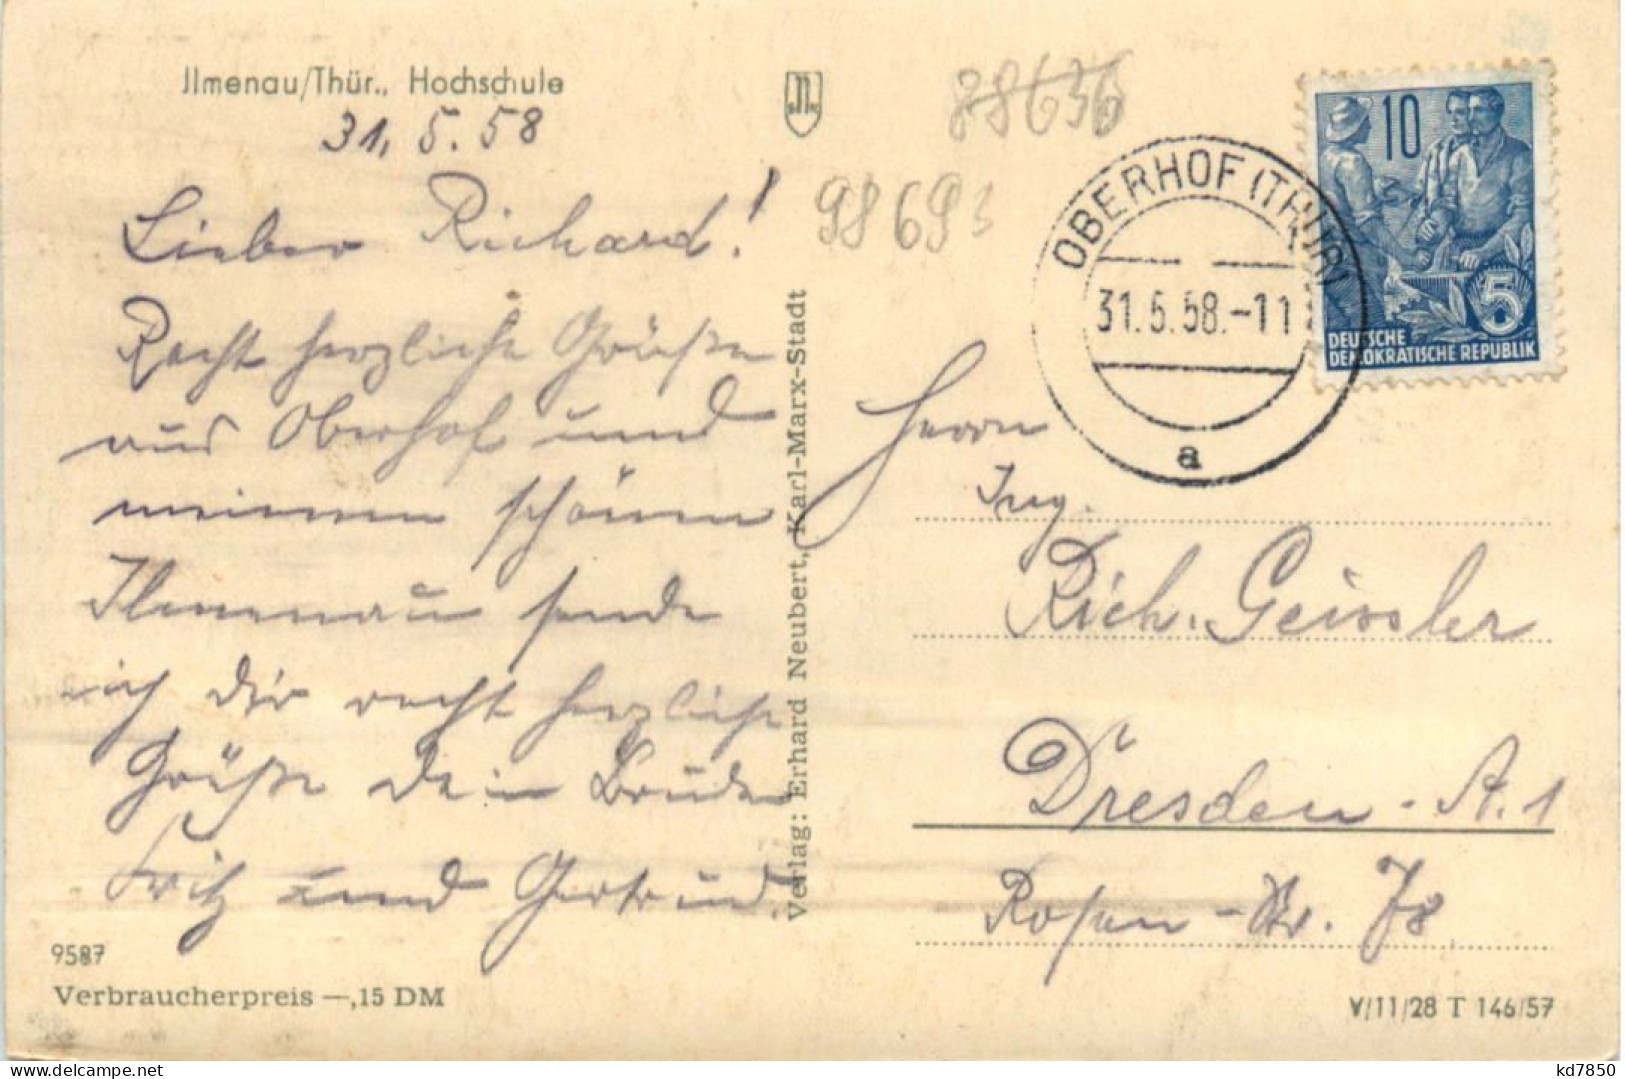 Jlmenau/Thür., Hochschule
31. 5. 58
Lieber Richard!
Recht herzliche Grüße
aus Oberhof und
meinem schönen
Ilmenau sende
ich dir recht herzliche
Grüße Dein Bruder
Fritz und Gertrud
9587
Verbraucherpreis —,15 DM
Verlag: Erhard Neubert, Karl-Marx-Stadt
88636
98693
OBERHOF (THÜR)
31.5.58.-11
a
10
5
DEUTSCHE
DEMOKRATISCHE REPUBLIK
Herrn
Ing.
Rich. Geissler
Dresden-A. 1
Rosen-Str. 78
V/11/28 T 146/57
kd7850